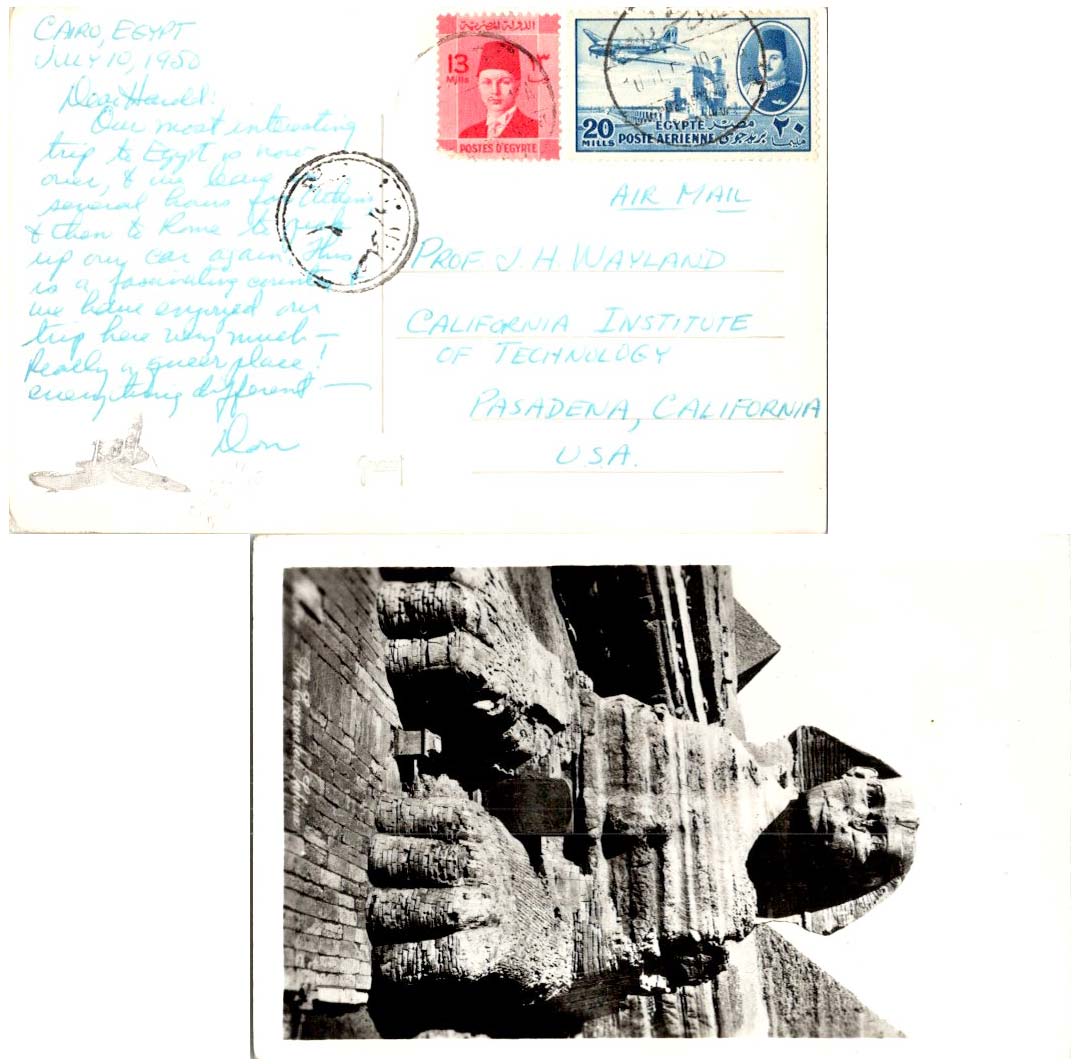 CAIRO, EGYPT
JULY 10, 1950
Dear Harold:
Our most interesting
trip to Egypt is now
over, & we leave in
several hours for Athens
& then to Rome to pick
up our car again. This
is a fascinating country &
we have enjoyed our
trip here very much –
Really a queer place!
everything different –
Don
الدولة المصرية
13 ١٣
Mills
POSTES D'EGYPTE
EGYPTE مصر
20 POSTE AERIENNE بريد جوى ٢٠
MILLS مليما
AIR MAIL
PROF J. H. WAYLAND
CALIFORNIA INSTITUTE
OF TECHNOLOGY
PASADENA, CALIFORNIA
U.S.A.